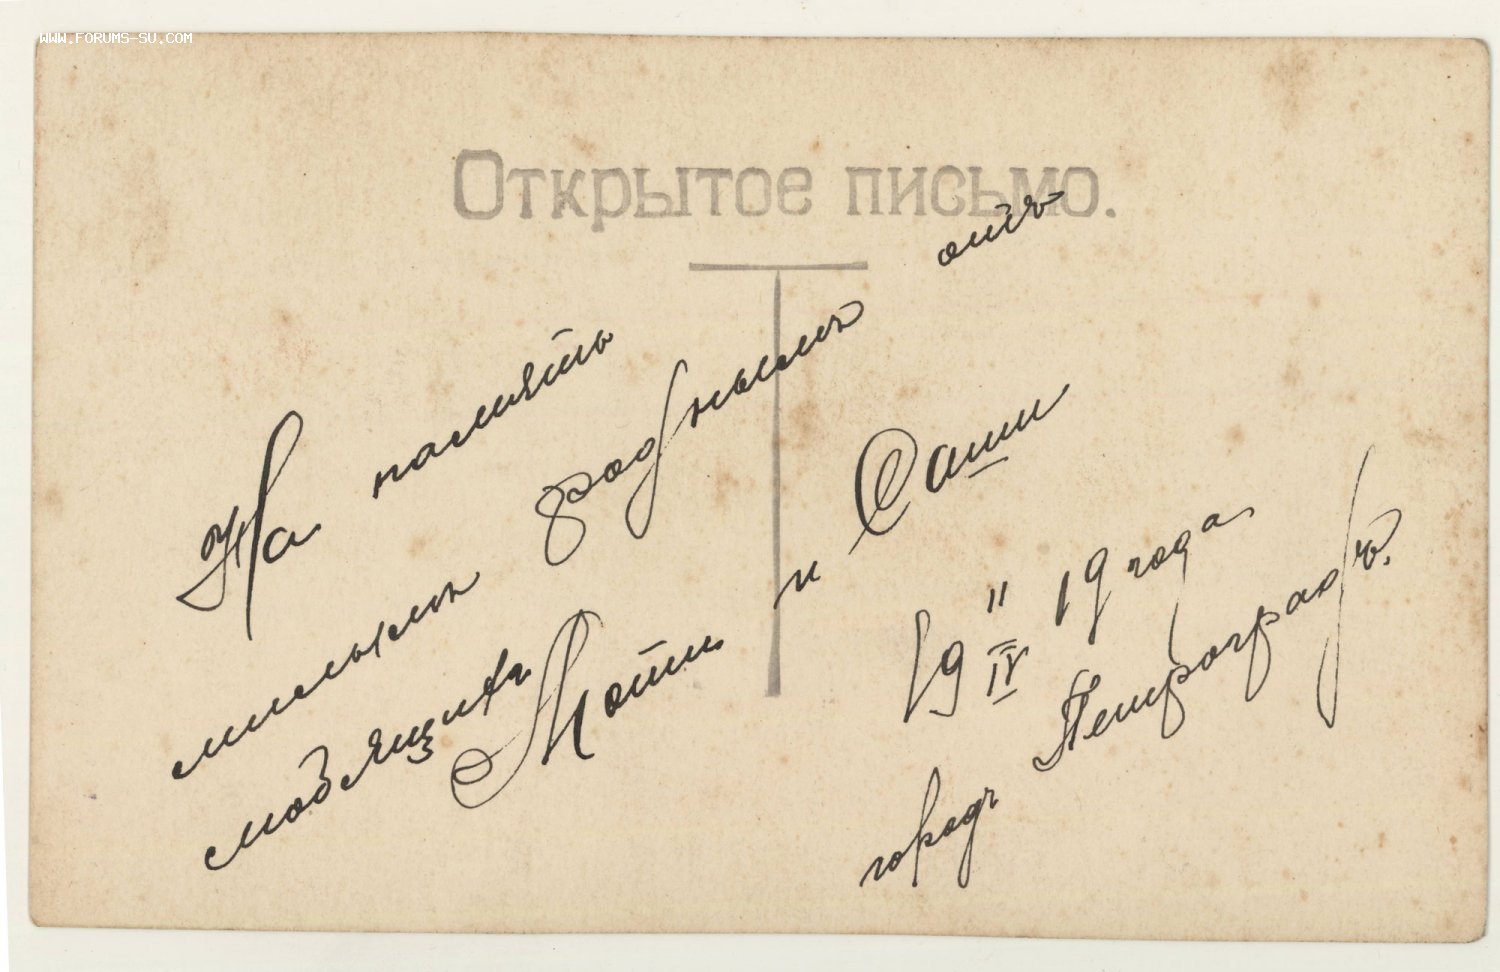 WWW.FORUMS-SU.COM
Открытое письмо.
На память
милымъ роднымъ отъ
любящихъ Моти и Саши
19 II/IV 19 года
городъ Петроградъ.